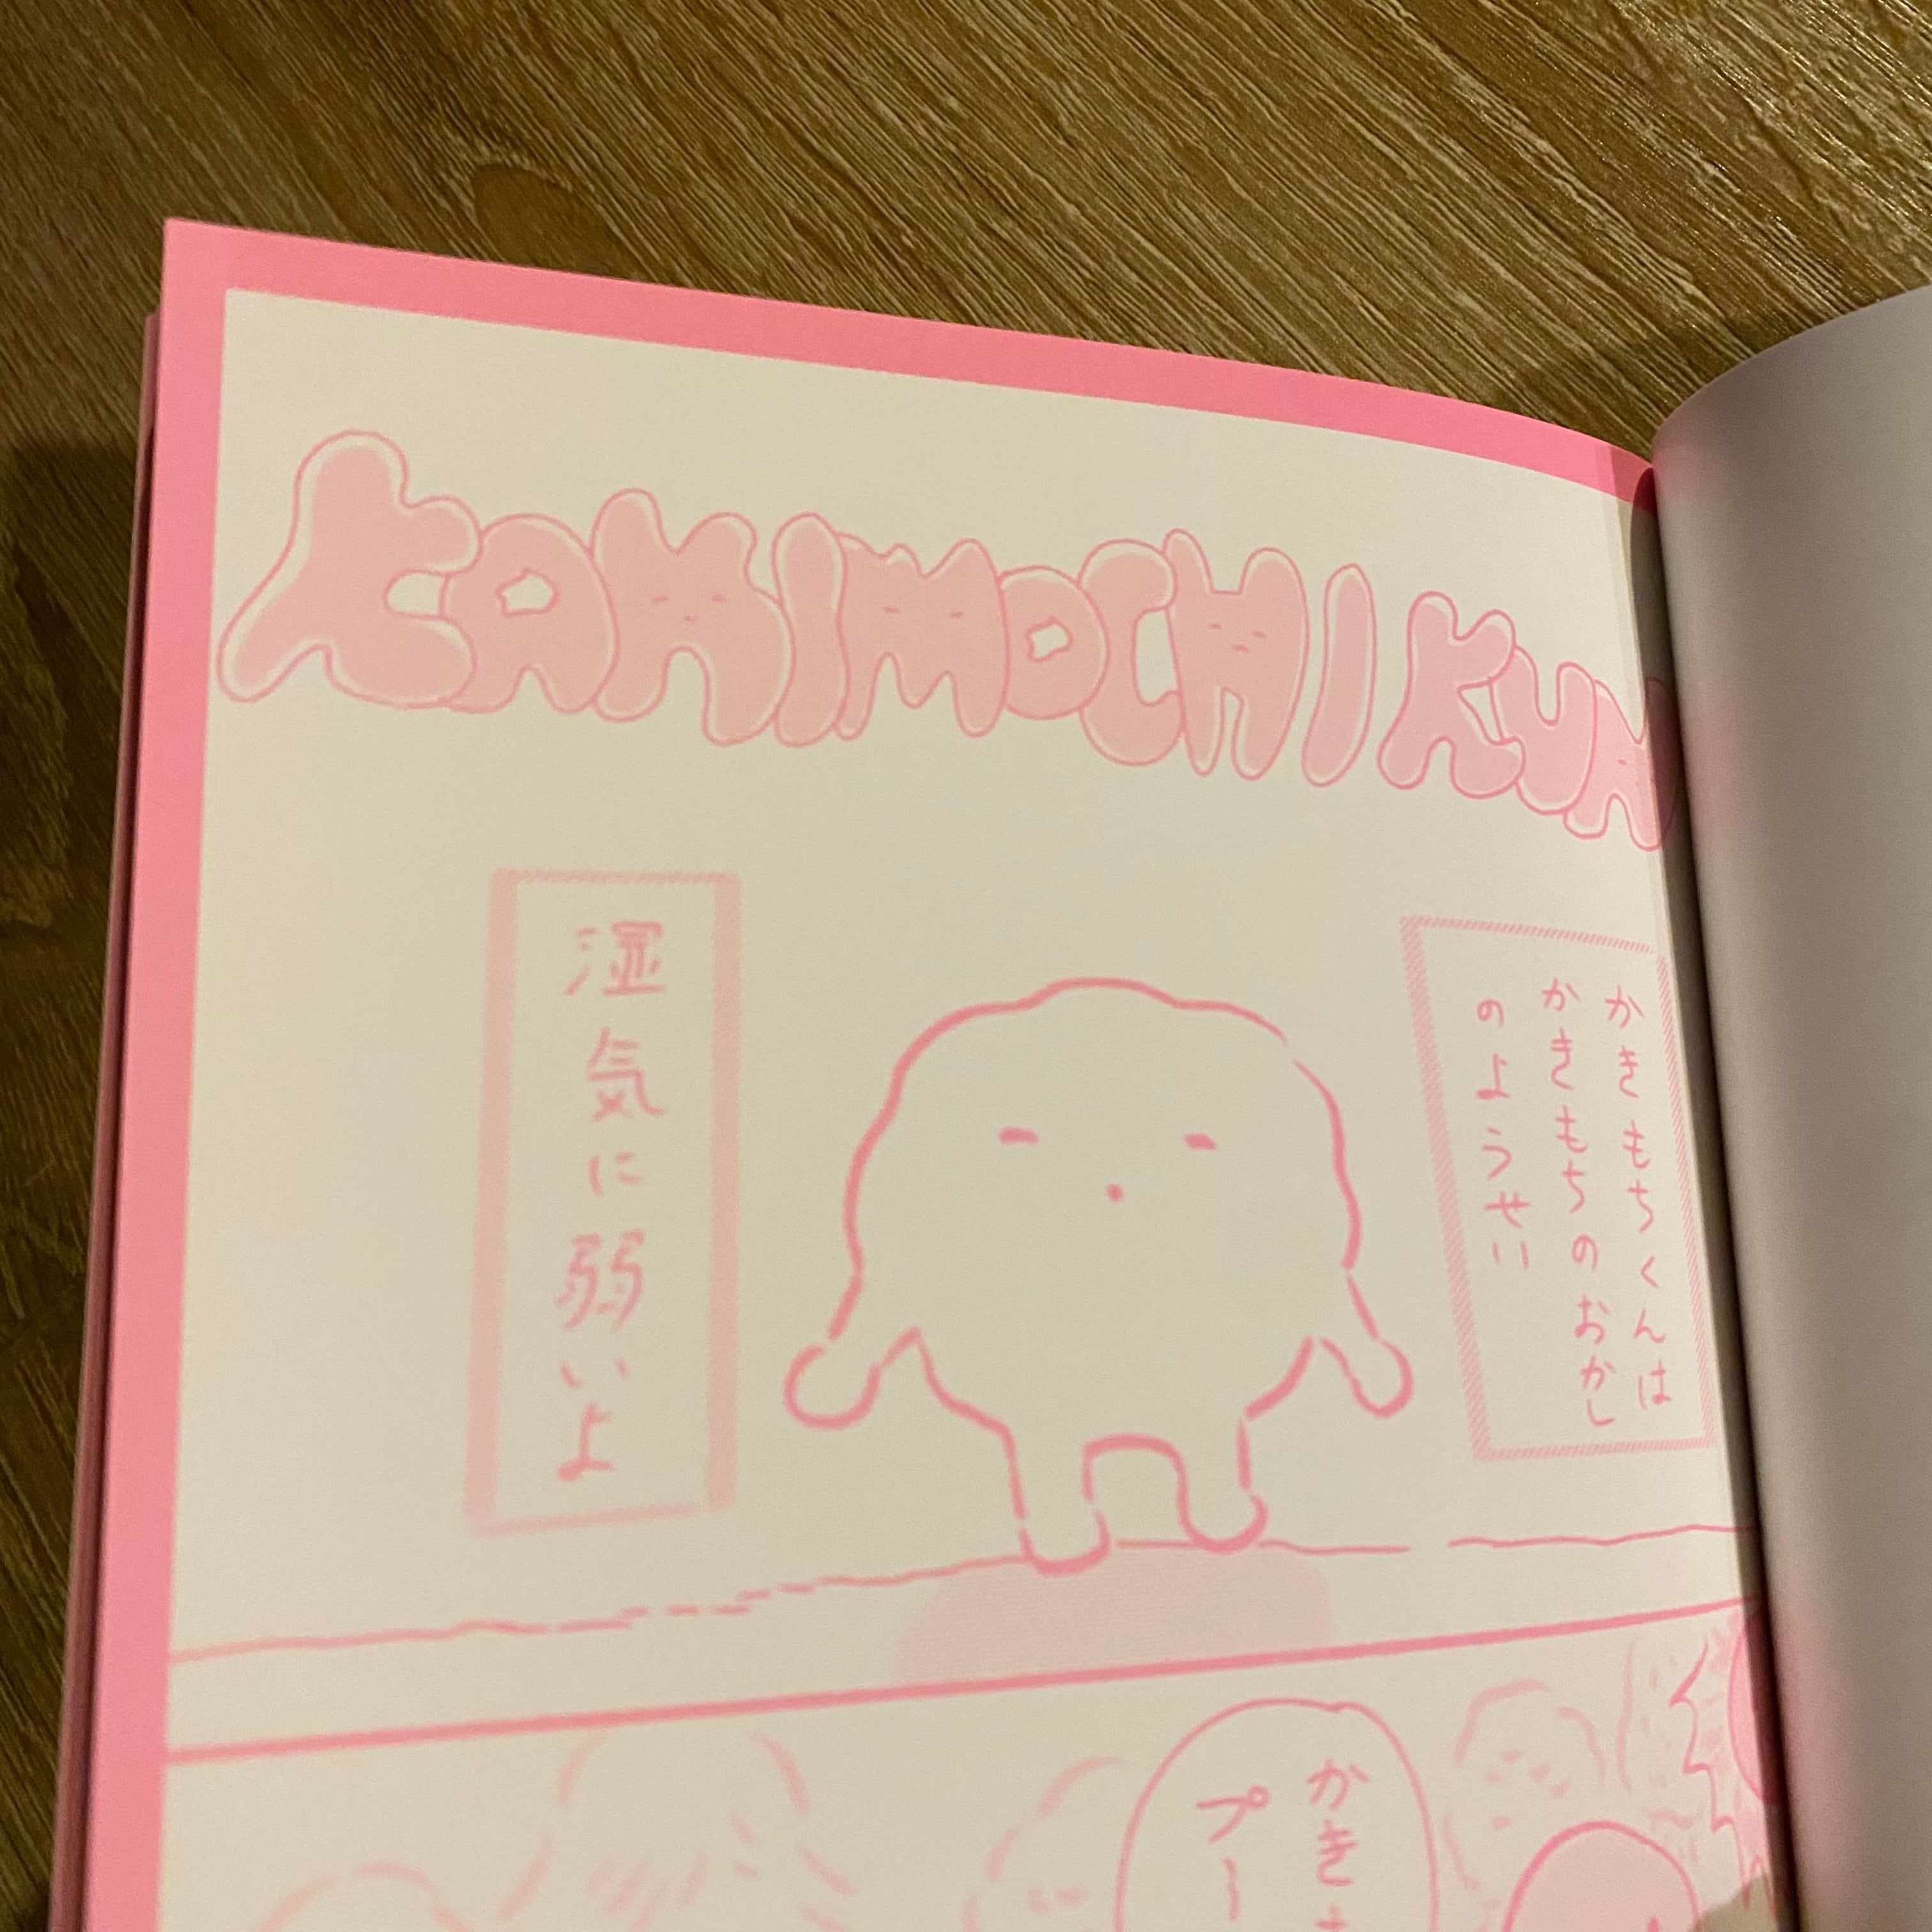 KAKIMOCHI KUN
かきもちくんは
かきもちのおかし
のようせい
湿気に弱いよ
かき
プー